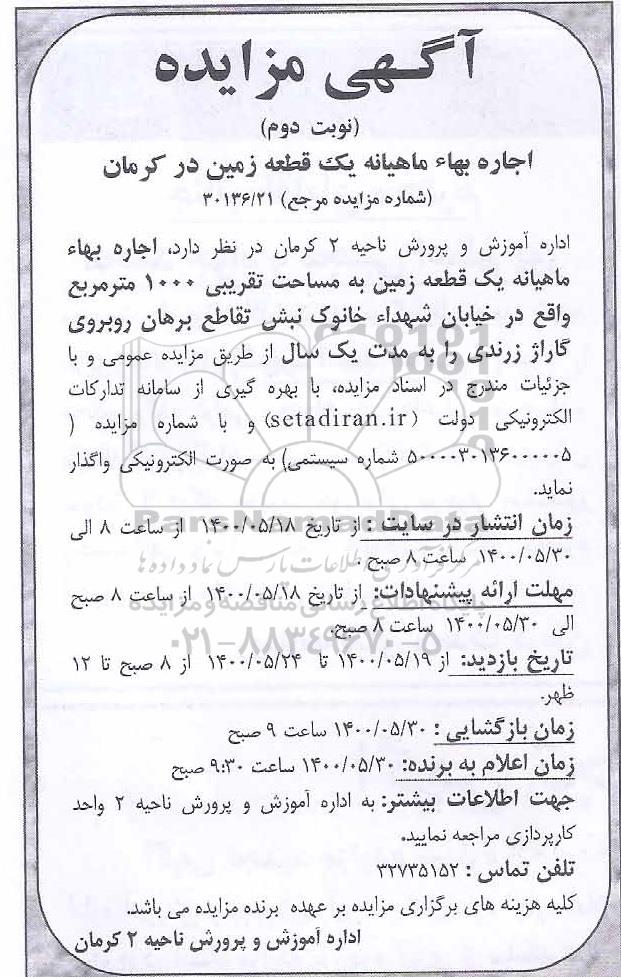 آگهی مزایده
(نوبت دوم)
اجاره بهاء ماهیانه یک قطعه زمین در کرمان
(شماره مزایده مرجع) ۳۰۱۳۶/۲۱
اداره آموزش و پرورش ناحیه ۲ کرمان در نظر دارد، اجاره بهاء
ماهیانه یک قطعه زمین به مساحت تقریبی ۱۰۰۰ مترمربع
واقع در خیابان شهداء خانوک نبش تقاطع برهان روبروی
گاراژ زرندی را به مدت یک سال از طریق مزایده عمومی و با
جزئیات مندرج در اسناد مزایده، با بهره گیری از سامانه تدارکات
الکترونیکی دولت (setadiran.ir) و با شماره مزایده (
۵۰۰۰۰۳۰۱۳۶۰۰۰۰۰۵ شماره سیستمی) به صورت الکترونیکی واگذار
نماید.
زمان انتشار در سایت : از تاریخ ۱۴۰۰/۰۵/۱۸ از ساعت ۸ الی
۱۴۰۰/۰۵/۳۰ ساعت ۸ صبح .
مهلت ارائه پیشنهادات: از تاریخ ۱۴۰۰/۰۵/۱۸ از ساعت ۸ صبح
الی ۱۴۰۰/۰۵/۳۰ ساعت ۸ صبح.
تاریخ بازدید: از ۱۴۰۰/۰۵/۱۹ تا ۱۴۰۰/۰۵/۲۴ از ۸ صبح تا ۱۲
ظهر.
زمان بازگشایی : ۱۴۰۰/۰۵/۳۰ ساعت ۹ صبح
زمان اعلام به برنده: ۱۴۰۰/۰۵/۳۰ ساعت ۹:۳۰ صبح
جهت اطلاعات بیشتر: به اداره آموزش و پرورش ناحیه ۲ واحد
کارپردازی مراجعه نمایید.
تلفن تماس : ۳۲۷۳۵۱۵۲
کلیه هزینه های برگزاری مزایده بر عهده برنده مزایده می باشد.
اداره آموزش و پرورش ناحیه ۲ کرمان
ParsNamadData
مرکز فرآوری اطلاعات پارس نماد داده ها
پایگاه اطلاع رسانی مناقصه و مزایده
۰۲۱-۸۸۳۴۹۶۷۰-۵